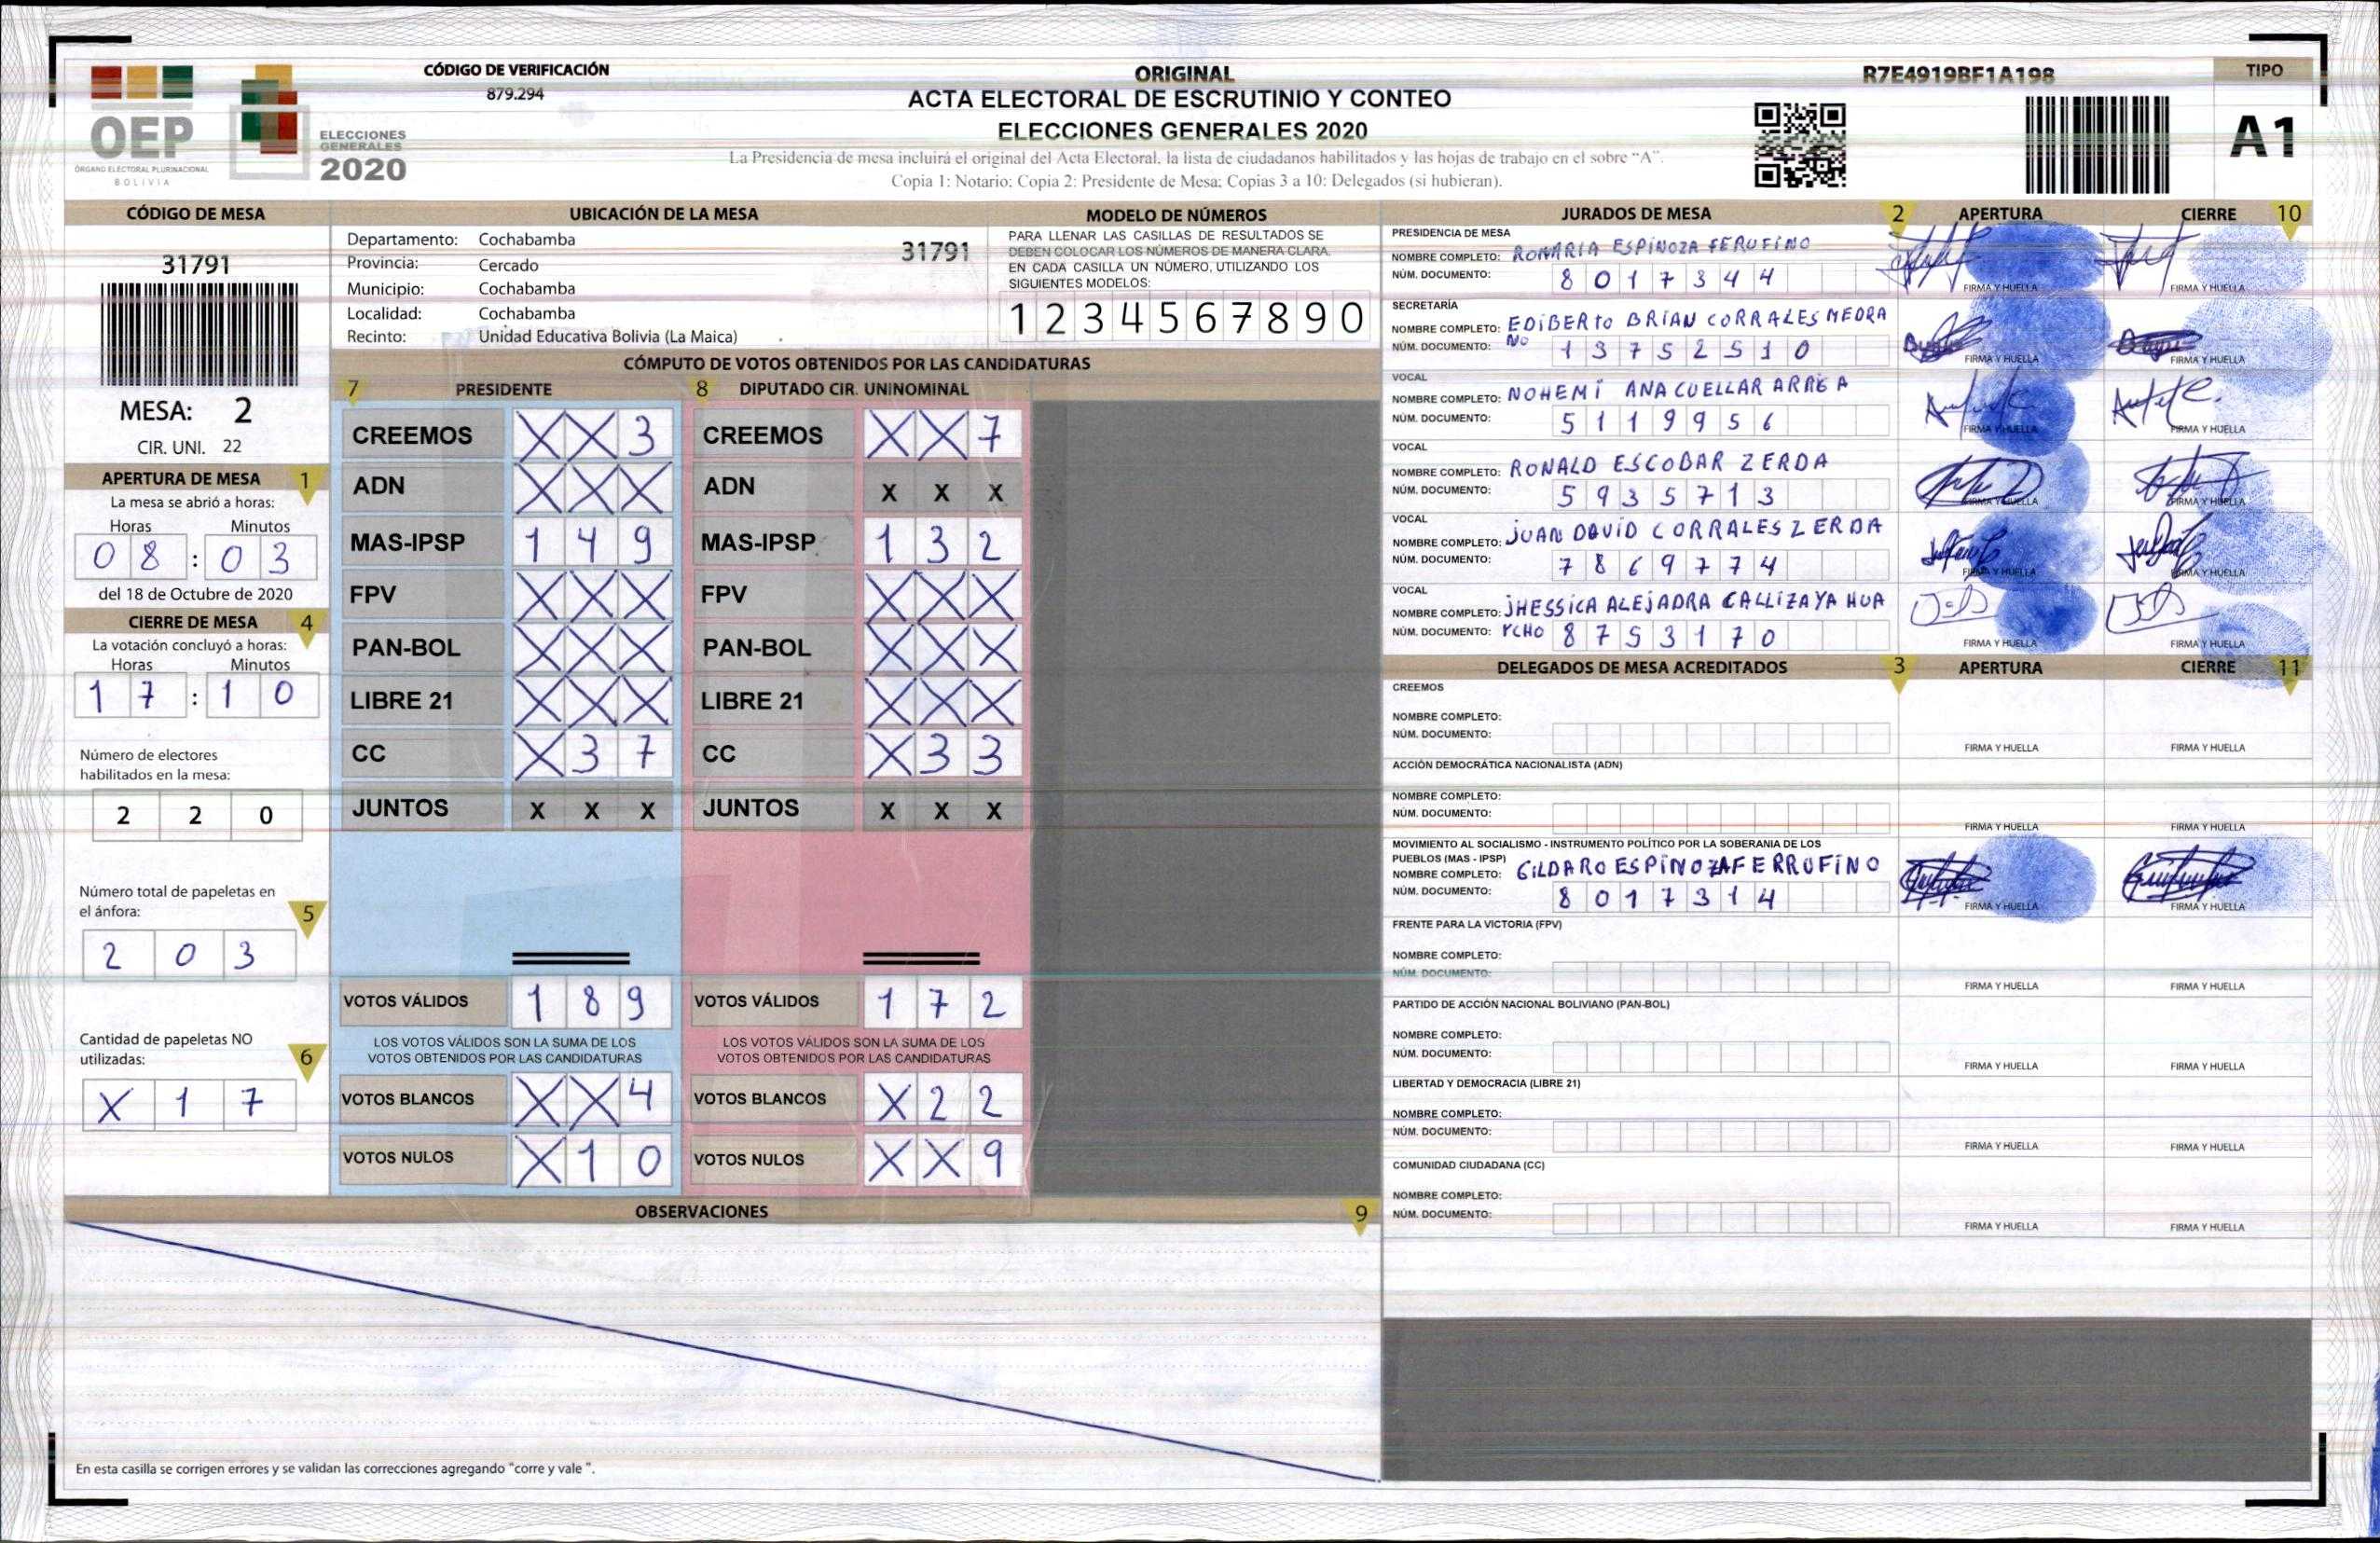 CÓDIGO DE VERIFICACIÓN
879.294
OEP
ÓRGANO ELECTORAL PLURINACIONAL
BOLIVIA
ELECCIONES
GENERALES
2020
ORIGINAL
ACTA ELECTORAL DE ESCRUTINIO Y CONTEO
ELECCIONES GENERALES 2020
La Presidencia de mesa incluirá el original del Acta Electoral, la lista de ciudadanos habilitados y las hojas de trabajo en el sobre "A".
Copia 1: Notario; Copia 2: Presidente de Mesa; Copias 3 a 10: Delegados (si hubieran).
R7E4919BF1A198
TIPO
A1
CÓDIGO DE MESA
31791
MESA: 2
CIR. UNI. 22
APERTURA DE MESA 1
La mesa se abrió a horas:
Horas Minutos
08 : 03
del 18 de Octubre de 2020
CIERRE DE MESA 4
La votación concluyó a horas:
Horas Minutos
17 : 10
Número de electores
habilitados en la mesa:
2 2 0
Número total de papeletas en
el ánfora: 5
2 0 3
Cantidad de papeletas NO
utilizadas: 6
X 1 7
UBICACIÓN DE LA MESA
Departamento: Cochabamba
31791
Provincia: Cercado
Municipio: Cochabamba
Localidad: Cochabamba
Recinto: Unidad Educativa Bolivia (La Maica)
MODELO DE NÚMEROS
PARA LLENAR LAS CASILLAS DE RESULTADOS SE
DEBEN COLOCAR LOS NÚMEROS DE MANERA CLARA,
EN CADA CASILLA UN NÚMERO, UTILIZANDO LOS
SIGUIENTES MODELOS:
1 2 3 4 5 6 7 8 9 0
CÓMPUTO DE VOTOS OBTENIDOS POR LAS CANDIDATURAS
7 PRESIDENTE 8 DIPUTADO CIR. UNINOMINAL
CREEMOS X X 3 CREEMOS X X 7
ADN X X X ADN X X X
MAS-IPSP 1 4 9 MAS-IPSP 1 3 2
FPV X X X FPV X X X
PAN-BOL X X X PAN-BOL X X X
LIBRE 21 X X X LIBRE 21 X X X
CC X 3 7 CC X 3 3
JUNTOS X X X JUNTOS X X X
VOTOS VÁLIDOS 1 8 9 VOTOS VÁLIDOS 1 7 2
LOS VOTOS VÁLIDOS SON LA SUMA DE LOS LOS VOTOS VÁLIDOS SON LA SUMA DE LOS
VOTOS OBTENIDOS POR LAS CANDIDATURAS VOTOS OBTENIDOS POR LAS CANDIDATURAS
VOTOS BLANCOS X X 4 VOTOS BLANCOS X 2 2
VOTOS NULOS X 1 0 VOTOS NULOS X X 9
OBSERVACIONES 9
En esta casilla se corrigen errores y se validan las correcciones agregando "corre y vale ".
JURADOS DE MESA 2 APERTURA CIERRE 10
PRESIDENCIA DE MESA
NOMBRE COMPLETO: ROMARIA ESPINOZA FERUFINO
NÚM. DOCUMENTO: 8 0 1 7 3 4 4
FIRMA Y HUELLA FIRMA Y HUELLA
SECRETARÍA
NOMBRE COMPLETO: EDIBERTO BRIAN CORRALES MEDRA
NO
NÚM. DOCUMENTO: 1 3 7 5 2 5 1 0
FIRMA Y HUELLA FIRMA Y HUELLA
VOCAL
NOMBRE COMPLETO: NOHEMI ANA CUELLAR ARREA
NÚM. DOCUMENTO: 5 1 1 9 9 5 6
FIRMA Y HUELLA FIRMA Y HUELLA
VOCAL
NOMBRE COMPLETO: RONALD ESCOBAR ZERDA
NÚM. DOCUMENTO: 5 9 3 5 7 1 3
FIRMA Y HUELLA FIRMA Y HUELLA
VOCAL
NOMBRE COMPLETO: JUAN DAVID CORRALES ZERDA
NÚM. DOCUMENTO: 7 8 6 9 7 7 4
FIRMA Y HUELLA FIRMA Y HUELLA
VOCAL
NOMBRE COMPLETO: JHESSICA ALEJADRA CALLIZAYA HUA
NÚM. DOCUMENTO: YCHO 8 7 5 3 1 7 0
FIRMA Y HUELLA FIRMA Y HUELLA
DELEGADOS DE MESA ACREDITADOS 3 APERTURA CIERRE 11
CREEMOS
NOMBRE COMPLETO:
NÚM. DOCUMENTO:
FIRMA Y HUELLA FIRMA Y HUELLA
ACCIÓN DEMOCRÁTICA NACIONALISTA (ADN)
NOMBRE COMPLETO:
NÚM. DOCUMENTO:
FIRMA Y HUELLA FIRMA Y HUELLA
MOVIMIENTO AL SOCIALISMO - INSTRUMENTO POLÍTICO POR LA SOBERANIA DE LOS
PUEBLOS (MAS - IPSP)
NOMBRE COMPLETO: GILDARO ESPINOZA FERRUFINO
NÚM. DOCUMENTO: 8 0 1 7 3 1 4
FIRMA Y HUELLA FIRMA Y HUELLA
FRENTE PARA LA VICTORIA (FPV)
NOMBRE COMPLETO:
NÚM. DOCUMENTO:
FIRMA Y HUELLA FIRMA Y HUELLA
PARTIDO DE ACCIÓN NACIONAL BOLIVIANO (PAN-BOL)
NOMBRE COMPLETO:
NÚM. DOCUMENTO:
FIRMA Y HUELLA FIRMA Y HUELLA
LIBERTAD Y DEMOCRACIA (LIBRE 21)
NOMBRE COMPLETO:
NÚM. DOCUMENTO:
FIRMA Y HUELLA FIRMA Y HUELLA
COMUNIDAD CIUDADANA (CC)
NOMBRE COMPLETO:
NÚM. DOCUMENTO:
FIRMA Y HUELLA FIRMA Y HUELLA